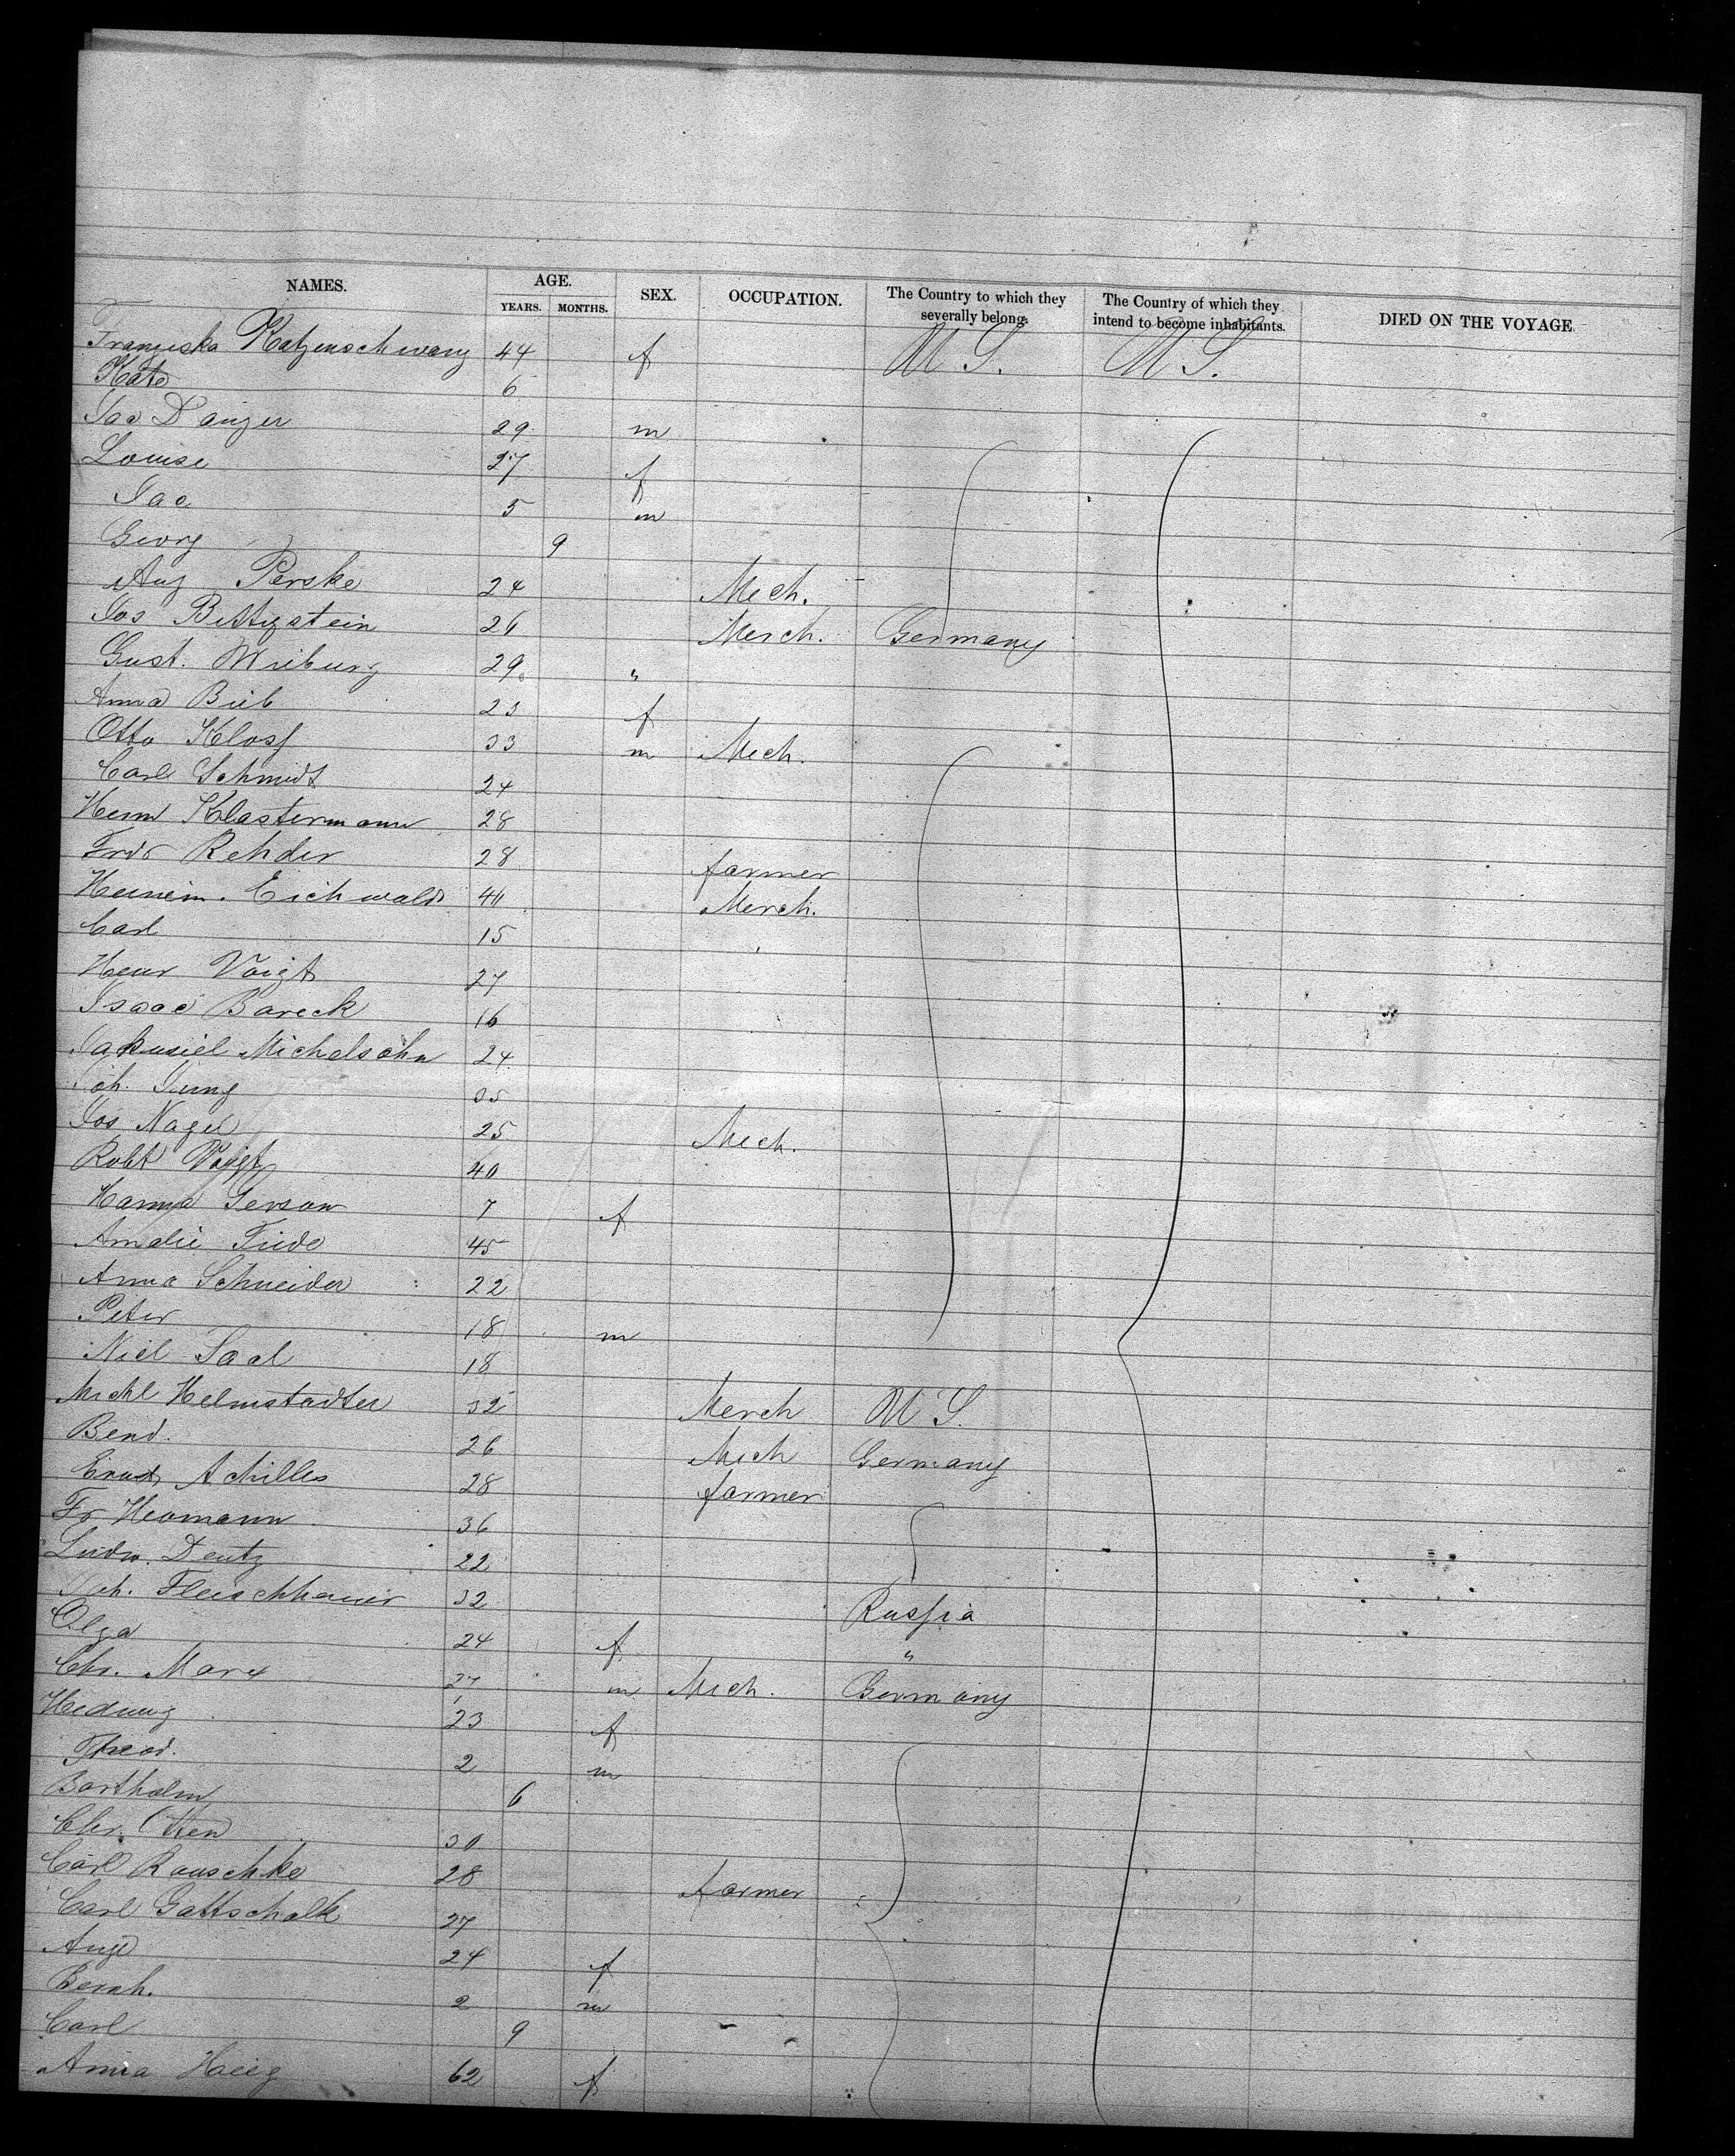 NAMES. AGE. SEX. OCCUPATION. The Country to which they severally belong. The Country of which they intend to become inhabitants. DIED ON THE VOYAGE
YEARS. MONTHS.
Franziska Katzenschwanz 44 f U S. U S.
Kate 6
Jac Danzer 29 m
Louise 27 f
Jac 5 m
Georg 9
Aug Perske 24 Mech.
Jos 26 Merch. Germany
Gust. 29 "
Anna Bieb 23 f
Otto Kloss 33 m Mech.
Carl Schmidt 24
Henn Klastermann 28
Fridr Rehder 28 farmer
Eichwald Merch.
Carl 15
Heinr Voigt 27
Isaac Bareck 16
Michelsohn 24
Joh. Jung 35
Jos Nagel 25 Mech.
Robt Voigt 40
Hanna Gerson 7 f
Amalie 45
Anna Schneider 22
Peter 18 m
Saal 18
Michl Helmstadter 32 Merch U S.
Bend. 26 Mech Germany
Ernst Achilles 28 farmer
Fr Heomann 36
Ludw. Deutz 22
Joh. Fleischhauer 32 Russia
Olga 24 f "
Chr. Marx 27 m Mech. Germany
Hedwig 23 f
Theod. 2 m
Bartholm 6
Chr. Otten 30
Carl Rauschke 28 farmer
Carl Gattschalk 27
Auge 24 f
Bernh. 2 m
Carl 9
Anna 62 f